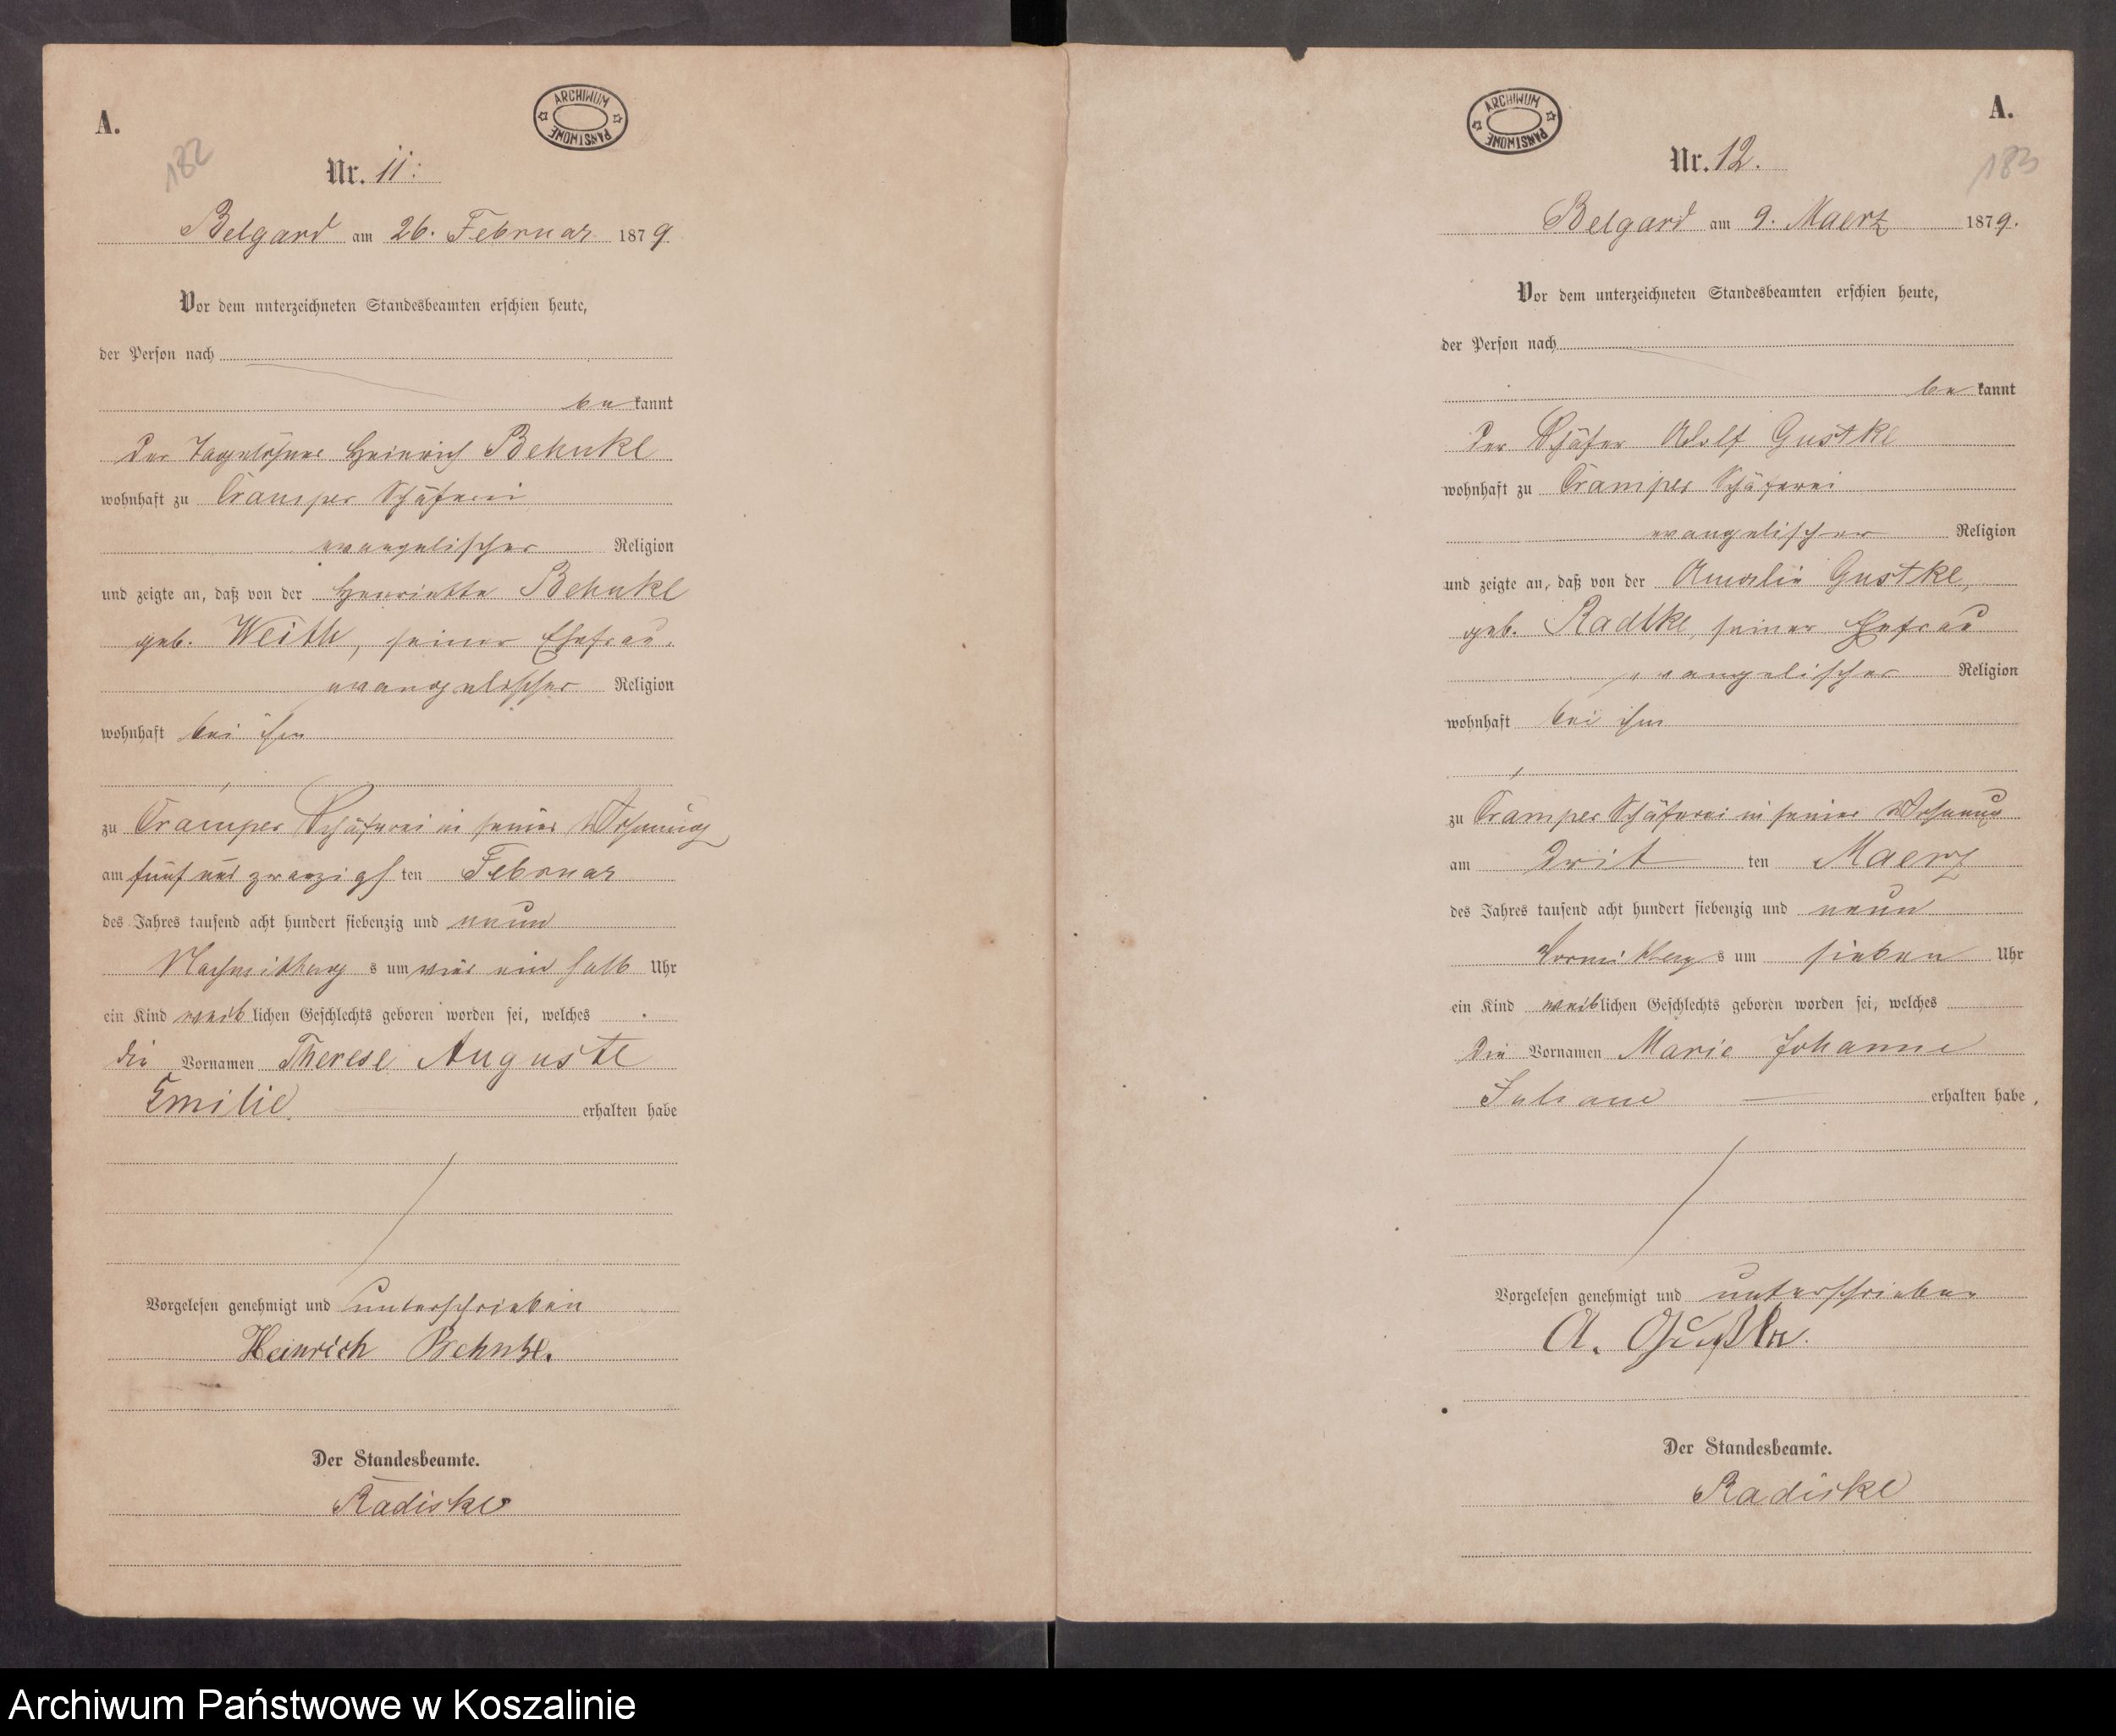 A.
ARCHIWUM PAŃSTWOWE
182
Nr. 11.
Belgard am 26. Februar 1879
Vor dem unterzeichneten Standesbeamten erschien heute,
der Person nach
be kannt
der Tagelöhner Heinrich Behnke
wohnhaft zu Cramper Schäferei
evangelischer Religion
und zeigte an, daß von der Henriette Behnke
geb. Weith, seiner Ehefrau,
evangelischer Religion
wohnhaft bei ihm
zu Cramper Schäferei in seiner Wohnung
am fünf und zwanzigsten Februar
des Jahres tausend acht hundert siebenzig und neun
Nachmittags um vier ein halb Uhr
ein Kind weiblichen Geschlechts geboren worden sei, welches
die Vornamen Therese Auguste
Emilie erhalten habe
Vorgelesen genehmigt und unterschrieben
Heinrich Behnke.
Der Standesbeamte.
Radiske
A.
ARCHIWUM PAŃSTWOWE
183
Nr. 12.
Belgard am 9. Maerz 1879.
Vor dem unterzeichneten Standesbeamten erschien heute,
der Person nach
be kannt
der Schäfer Adolf Gustke
wohnhaft zu Cramper Schäferei
evangelischer Religion
und zeigte an, daß von der Amalie Gustke,
geb. Radtke, seiner Ehefrau
evangelischer Religion
wohnhaft bei ihm
zu Cramper Schäferei in seiner Wohnung
am Dritten Maerz
des Jahres tausend acht hundert siebenzig und neun
Vormittags um sieben Uhr
ein Kind weiblichen Geschlechts geboren worden sei, welches
die Vornamen Marie Johanne
Juliane erhalten habe.
Vorgelesen genehmigt und unterschrieben
A. Gustke.
Der Standesbeamte.
Radiske
Archiwum Państwowe w Koszalinie